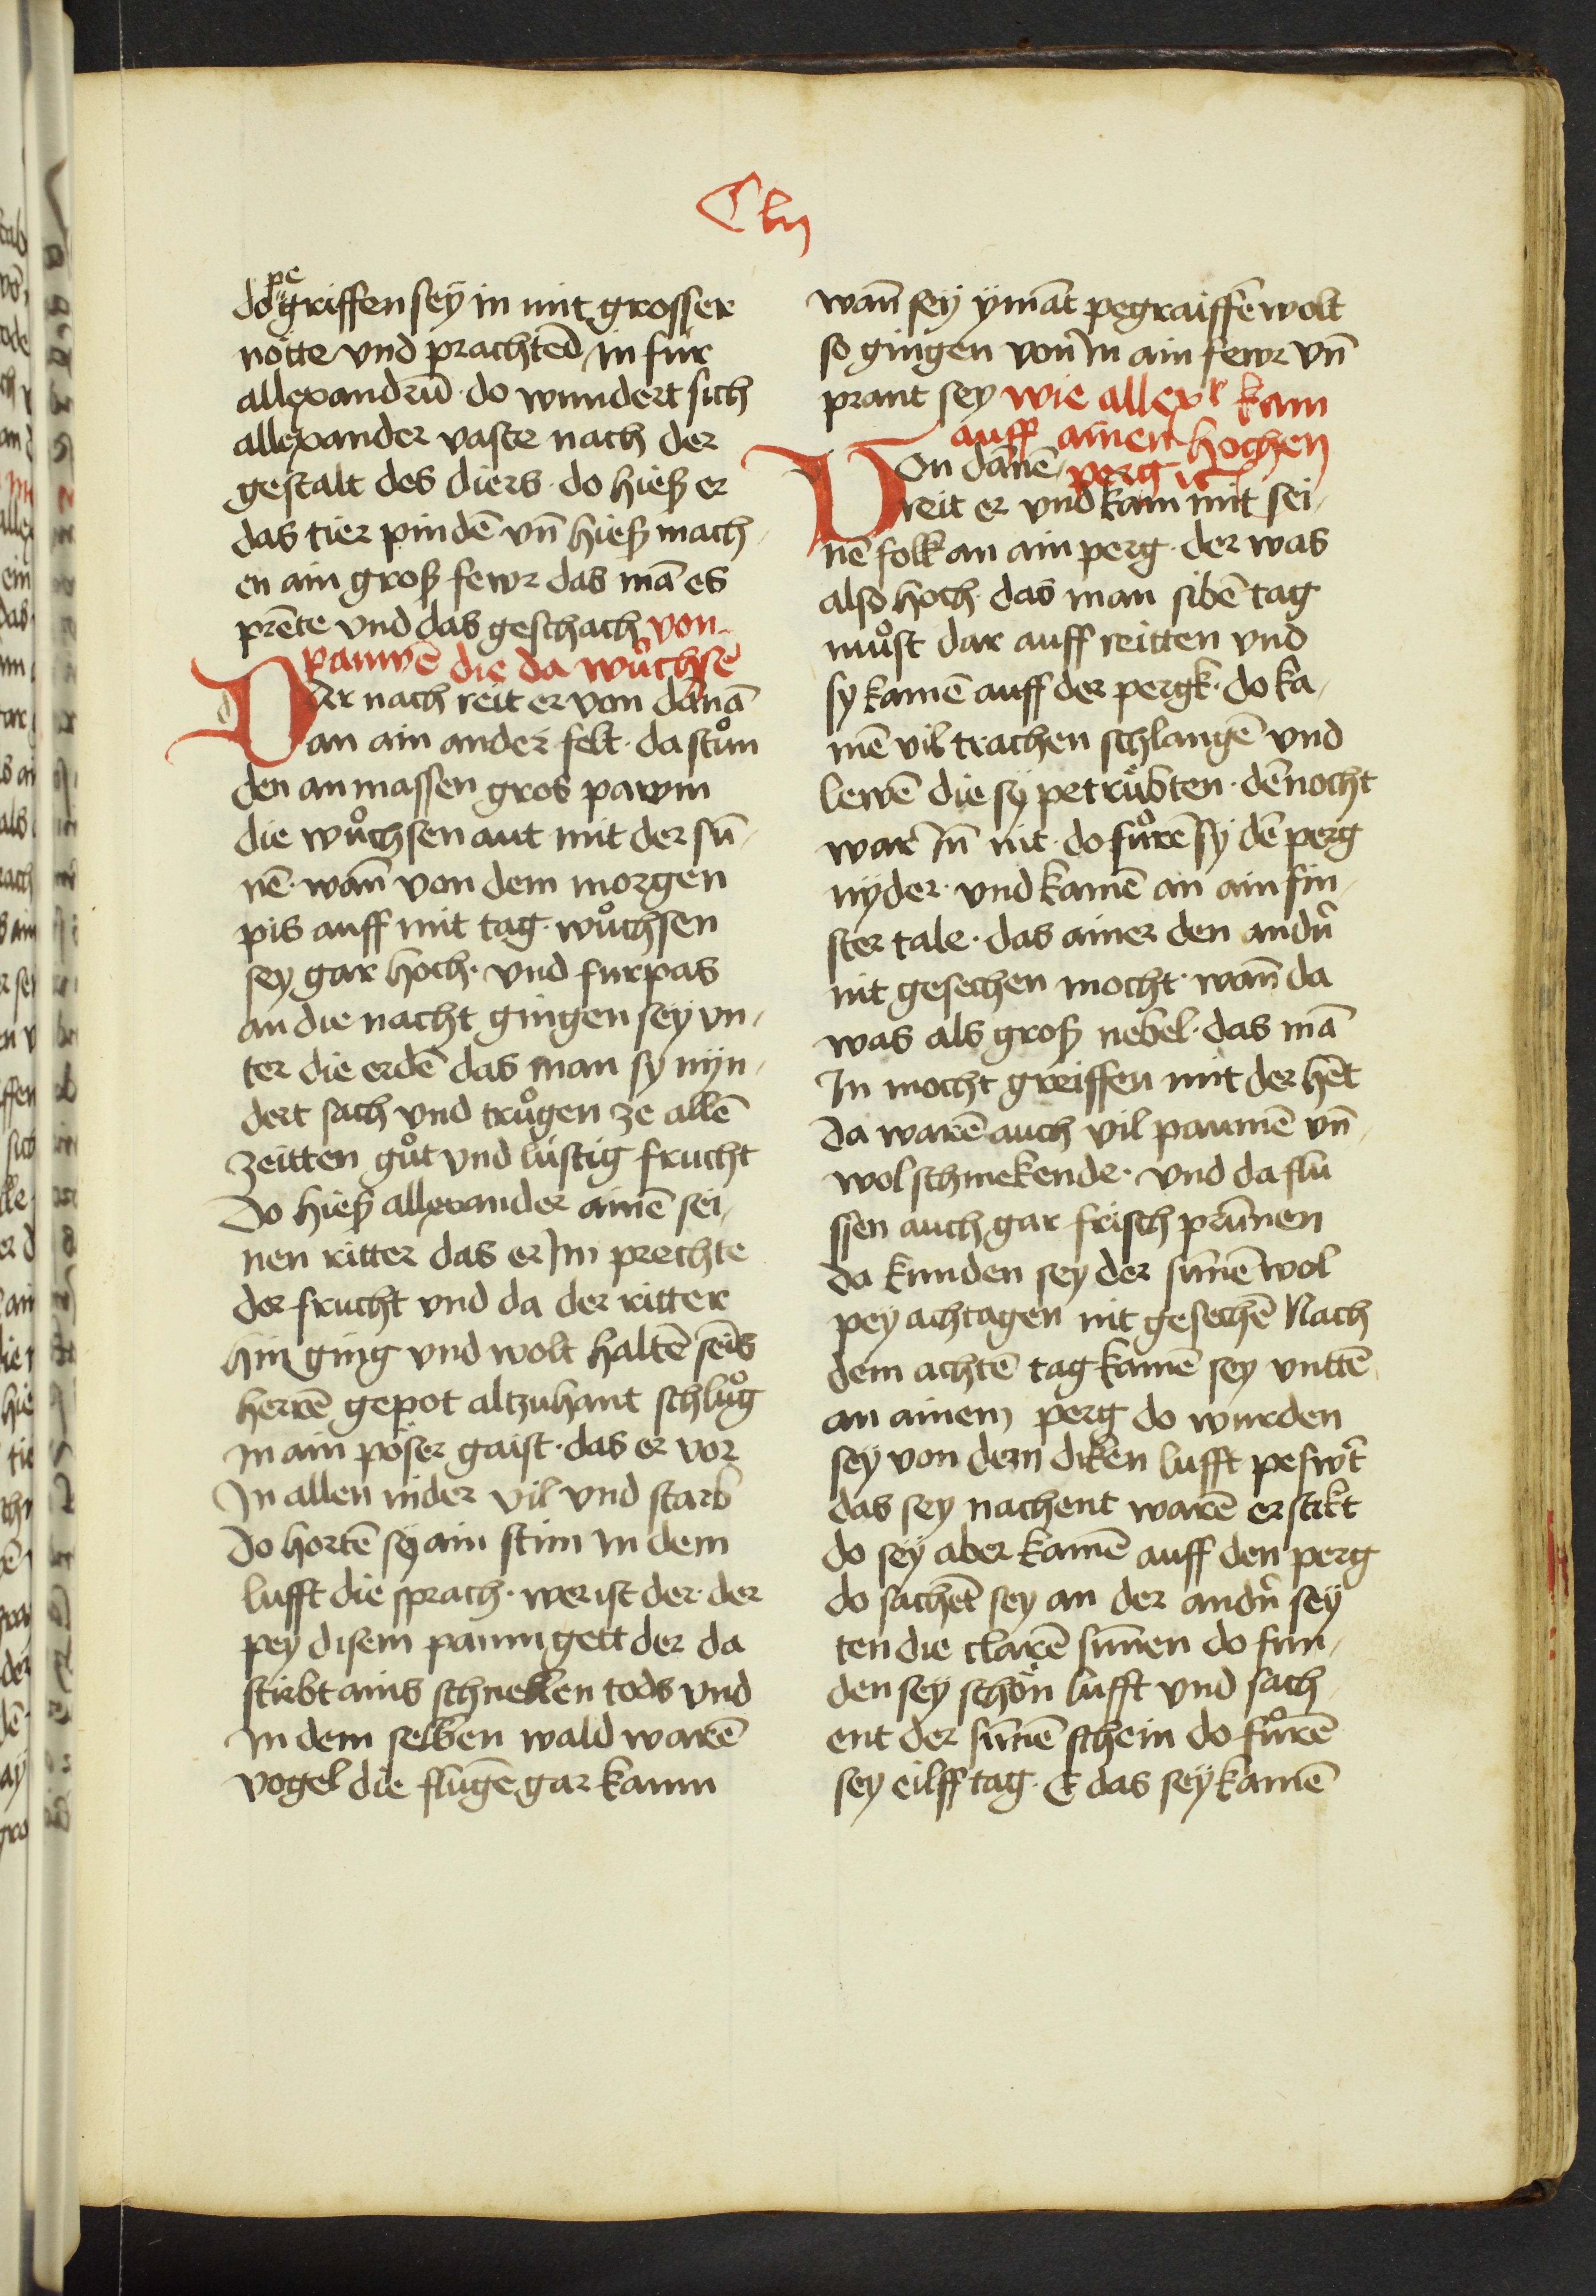 Clij
do pegriffen sey in mit grosser
nötte vnd prachted in für
allexandrū · do wundert sich
allexander vaste nach der
gestalt des diers · do hieß er
das tier pindē vn̄ hieß mach
en ain groß fewr das mā es
prēte vnd das geschach von
pauwē die da wůchsē
Der nach reit er von danā
an ain ander felt · da stůn
den an massen gros pawm
die wůchsen aut mit der sū
nē · wan̄ von dem morgen
pis auff mit tag · wůchsen
sey gar hoch · vnd furpas
an die nacht gingen sey vn
ter die erdē das man sy nyn
dert sach vnd trůgen ze allē
zeitten gůt vnd lustig frucht
Do hieß allexander ainē sei
nen ritter das er Im prechte
der frucht vnd da der ritter
hin ging vnd wolt haltē seīs
herrē gepot altzuhant schlůg
In ain pöser gaist · das er vor
In allen nider vil vnd starb
Do hortē sy ain stim In dem
lufft die sprach · wer ist der · der
pey disem paum gett der da
stirbt ains schnellen tods vnd
In dem selben wald warē
vogel die flugē gar kaum
wan̄ sey ymāt pegraiffē wolt
so gingen von In ain fewr vn̄
prant sey wie allexr kam
auff ainen hochen
Von dānē perg ꝛc
reit er vnd kam mit sei
nē folk an ain perg · der was
also hoch · das man sibē tag
můst dar auff reitten vnd
sy kamē auff der pergk · do ka
mē vil trachen schlangē vnd
lewē die sy petrübten · dēnocht
war In̄ nit · do fůrē sy dē perg
nyder · vnd kamē an ain fin
ster tale · das ainer den andn̄
nit gesechen mocht · wan̄ da
was als groß nebel · das mā
In mocht greiffen mit der hēt
Da warē auch vil paumē vn̄
wol schmekende · vnd da flu
ssen auch gar frisch prūnen
da kunden sey der sunnē wol
pey achtagen nit gesechē Nach
dem achtē tag kamē sey vnttē
an ainem perg do wurden
sey von dem diken lufft peswt̄
das sey nachent warē erstikt
do sey aber kamē auff den perg
do sachēt sey an der andn̄ sey
ten die clarē sunnen do fun
den sey schön lufft vnd sach
ent der sunnē schein do fůrē
sey eilff tag · E das sey kamē